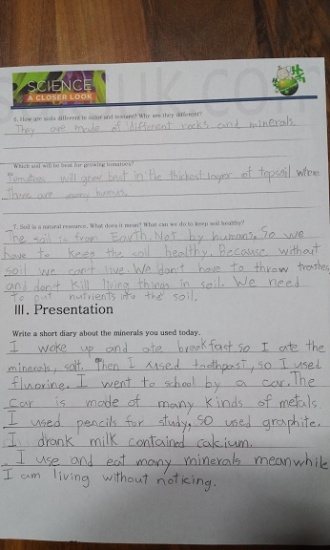 SCIENCE
A CLOSER LOOK
6. How are soils different in color and texture? Why are they different?
They are made of different rocks and minerals.
Which soil will be best for growing tomatoes?
Tomatoes will grow best in the thickest layer of topsoil where
There are many humus.
7. Soil is a natural resource. What does it mean? What can we do to keep soil healthy?
The soil is from Earth, Not by humans, So we
have to keep the soil healthy. Because without
soil we can't live. We don't have to throw trashes
and don't kill living things in soil. We need
To put nutrients into the soil.
III. Presentation
Write a short diary about the minerals you used today.
I woke up and ate breakfast, so I ate the
minerals, salt. Then I used toothpast, so I used
fluorine. I went to school by a car. The
Car is made of many kinds of metals
I used pencils for study, so used graphite.
I drank milk contained calcium.
I use and eat many minerals meanwhile
I am living without noticing.